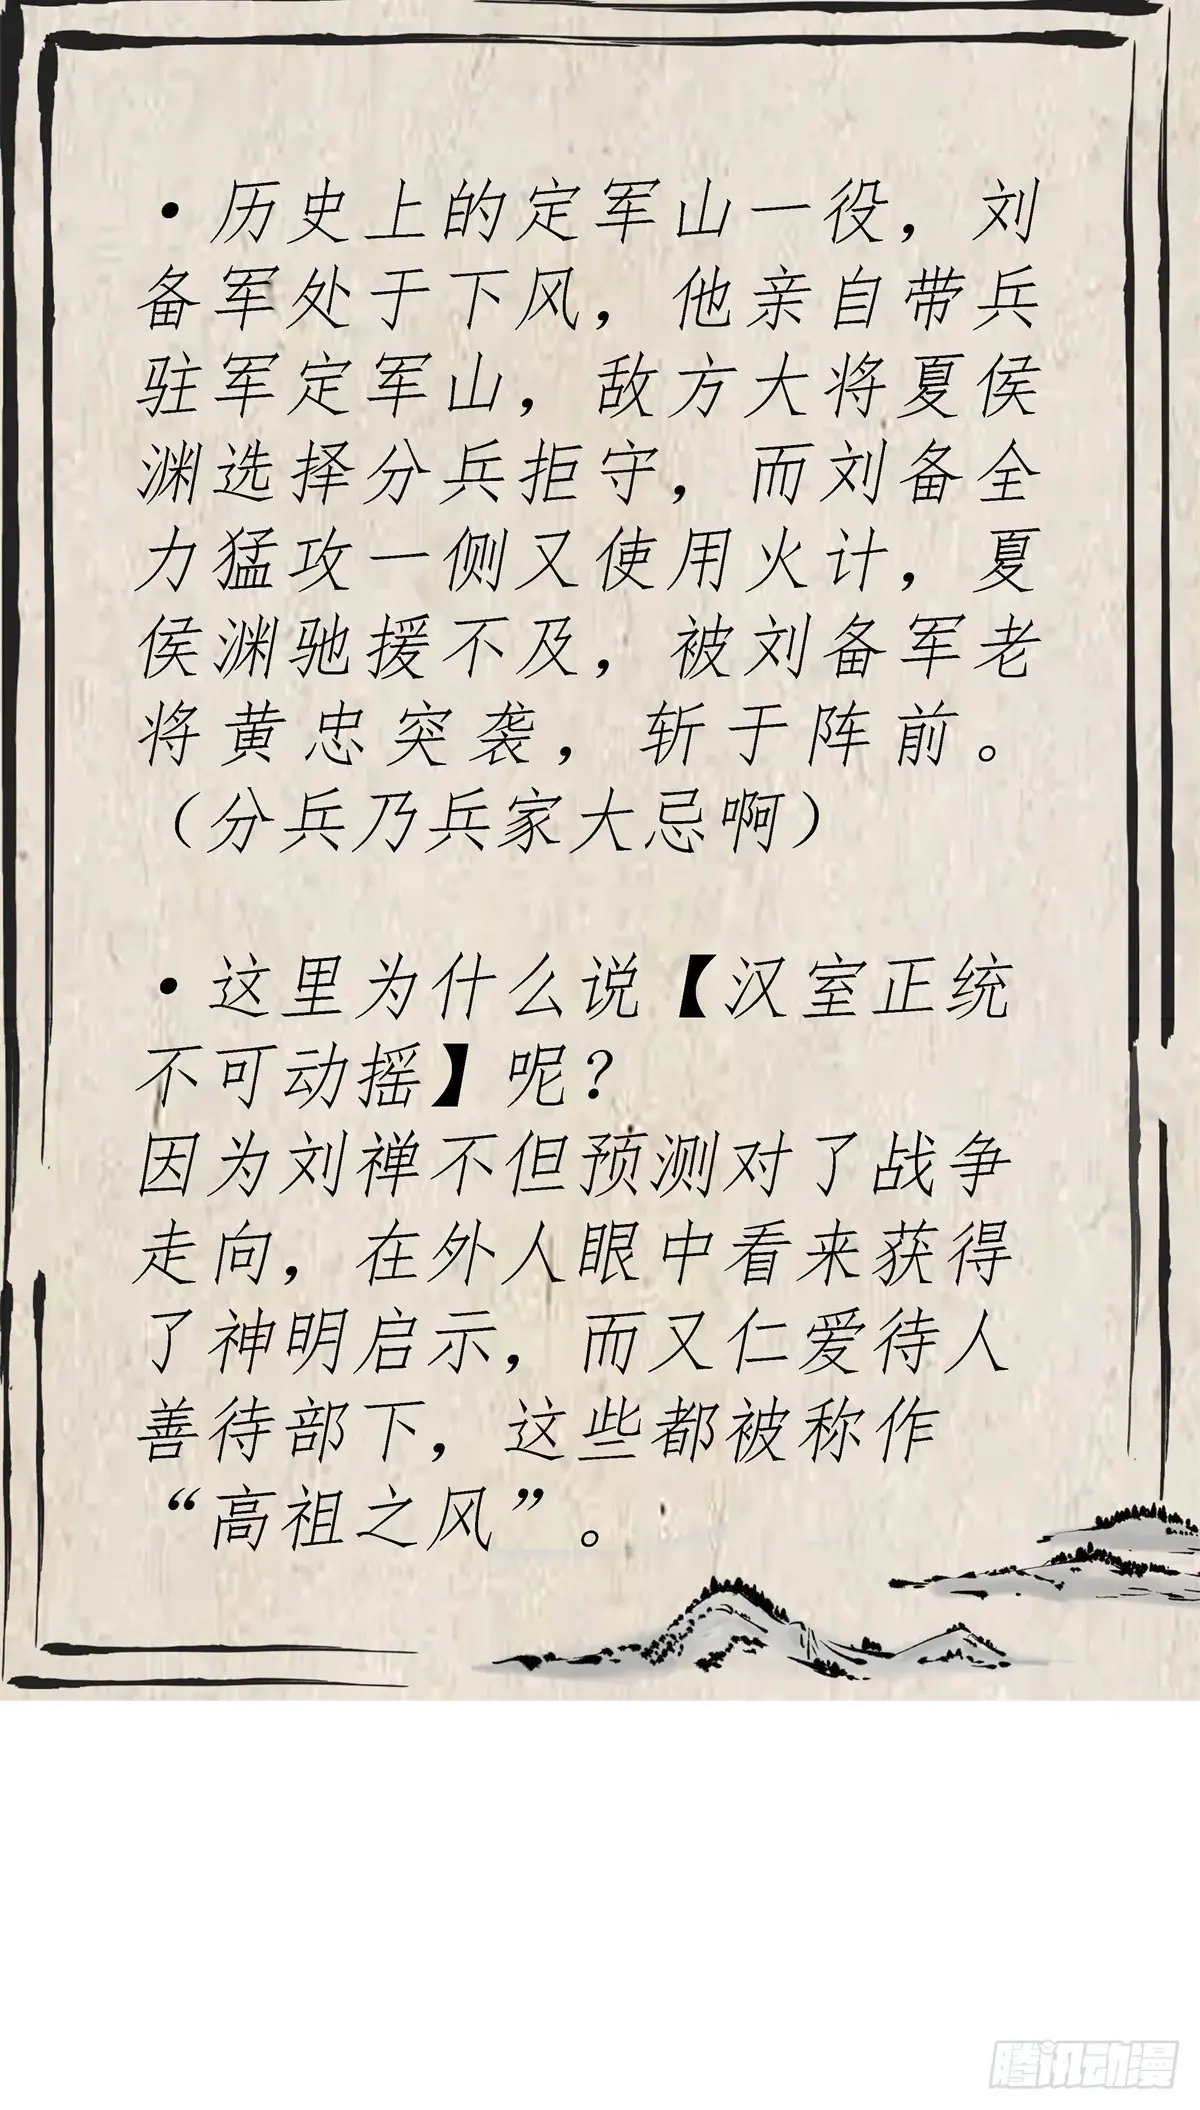 ·历史上的定军山一役，刘
备军处于下风，他亲自带兵
驻军定军山，敌方大将夏侯
渊选择分兵拒守，而刘备全
力猛攻一侧又使用火计，夏
侯渊驰援不及，被刘备军老
将黄忠突袭，斩于阵前。
（分兵乃兵家大忌啊）
·这里为什么说【汉室正统
不可动摇】呢？
因为刘禅不但预测对了战争
走向，在外人眼中看来获得
了神明启示，而又仁爱待人
善待部下，这些都被称作
“高祖之风”。
腾讯动漫